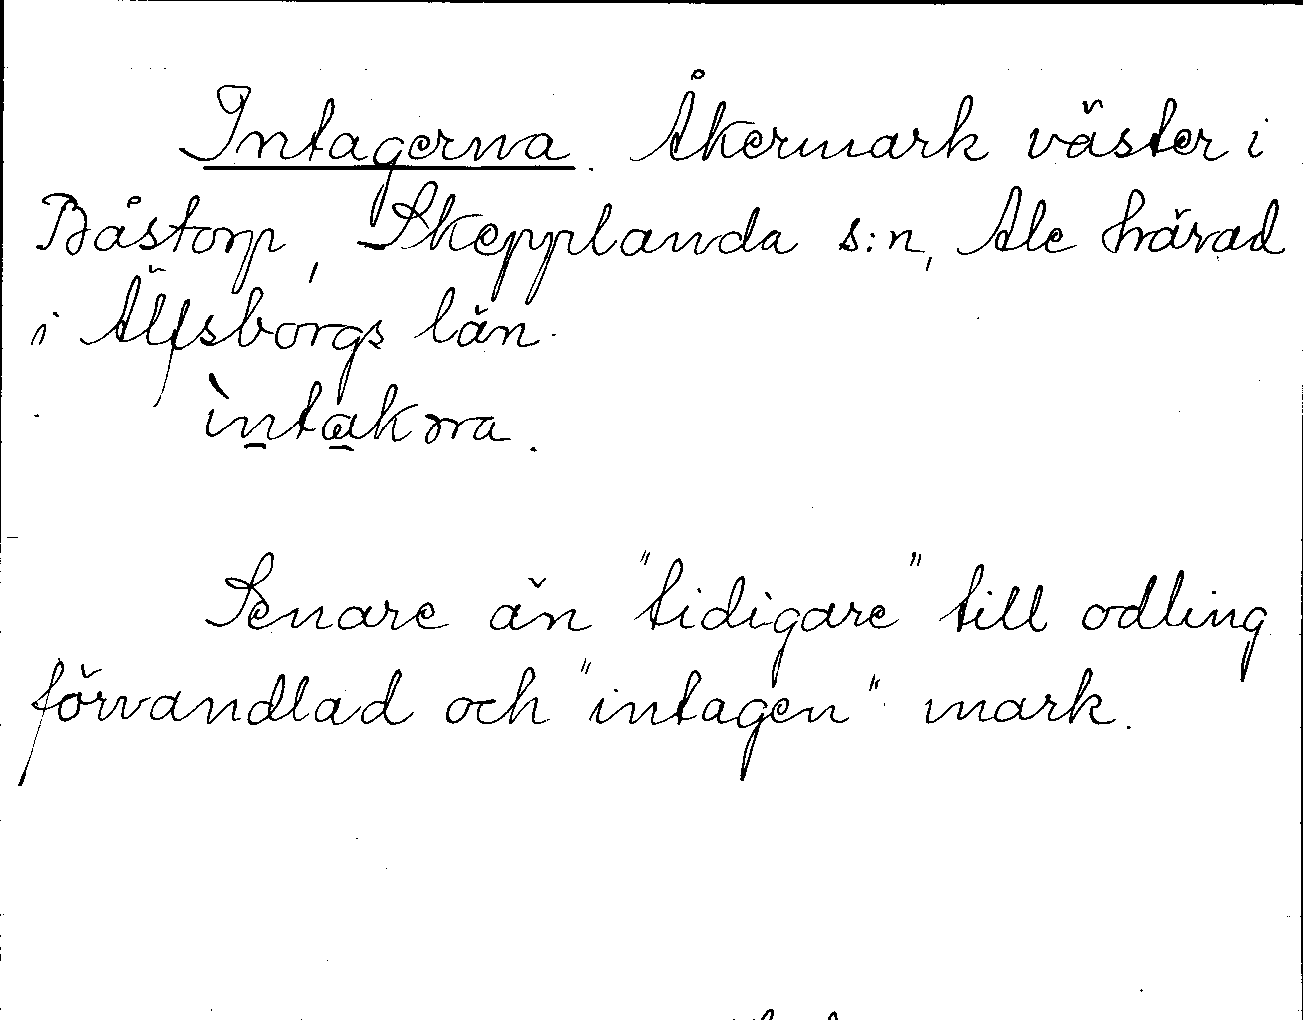 Intagerna. Åkermark väster i
Båstorp, Skepplanda s:n, Ale härad
i Älfsborgs län.
ìntakɷra.
Senare än "tidigare" till odling
förvandlad och "intagen" mark.